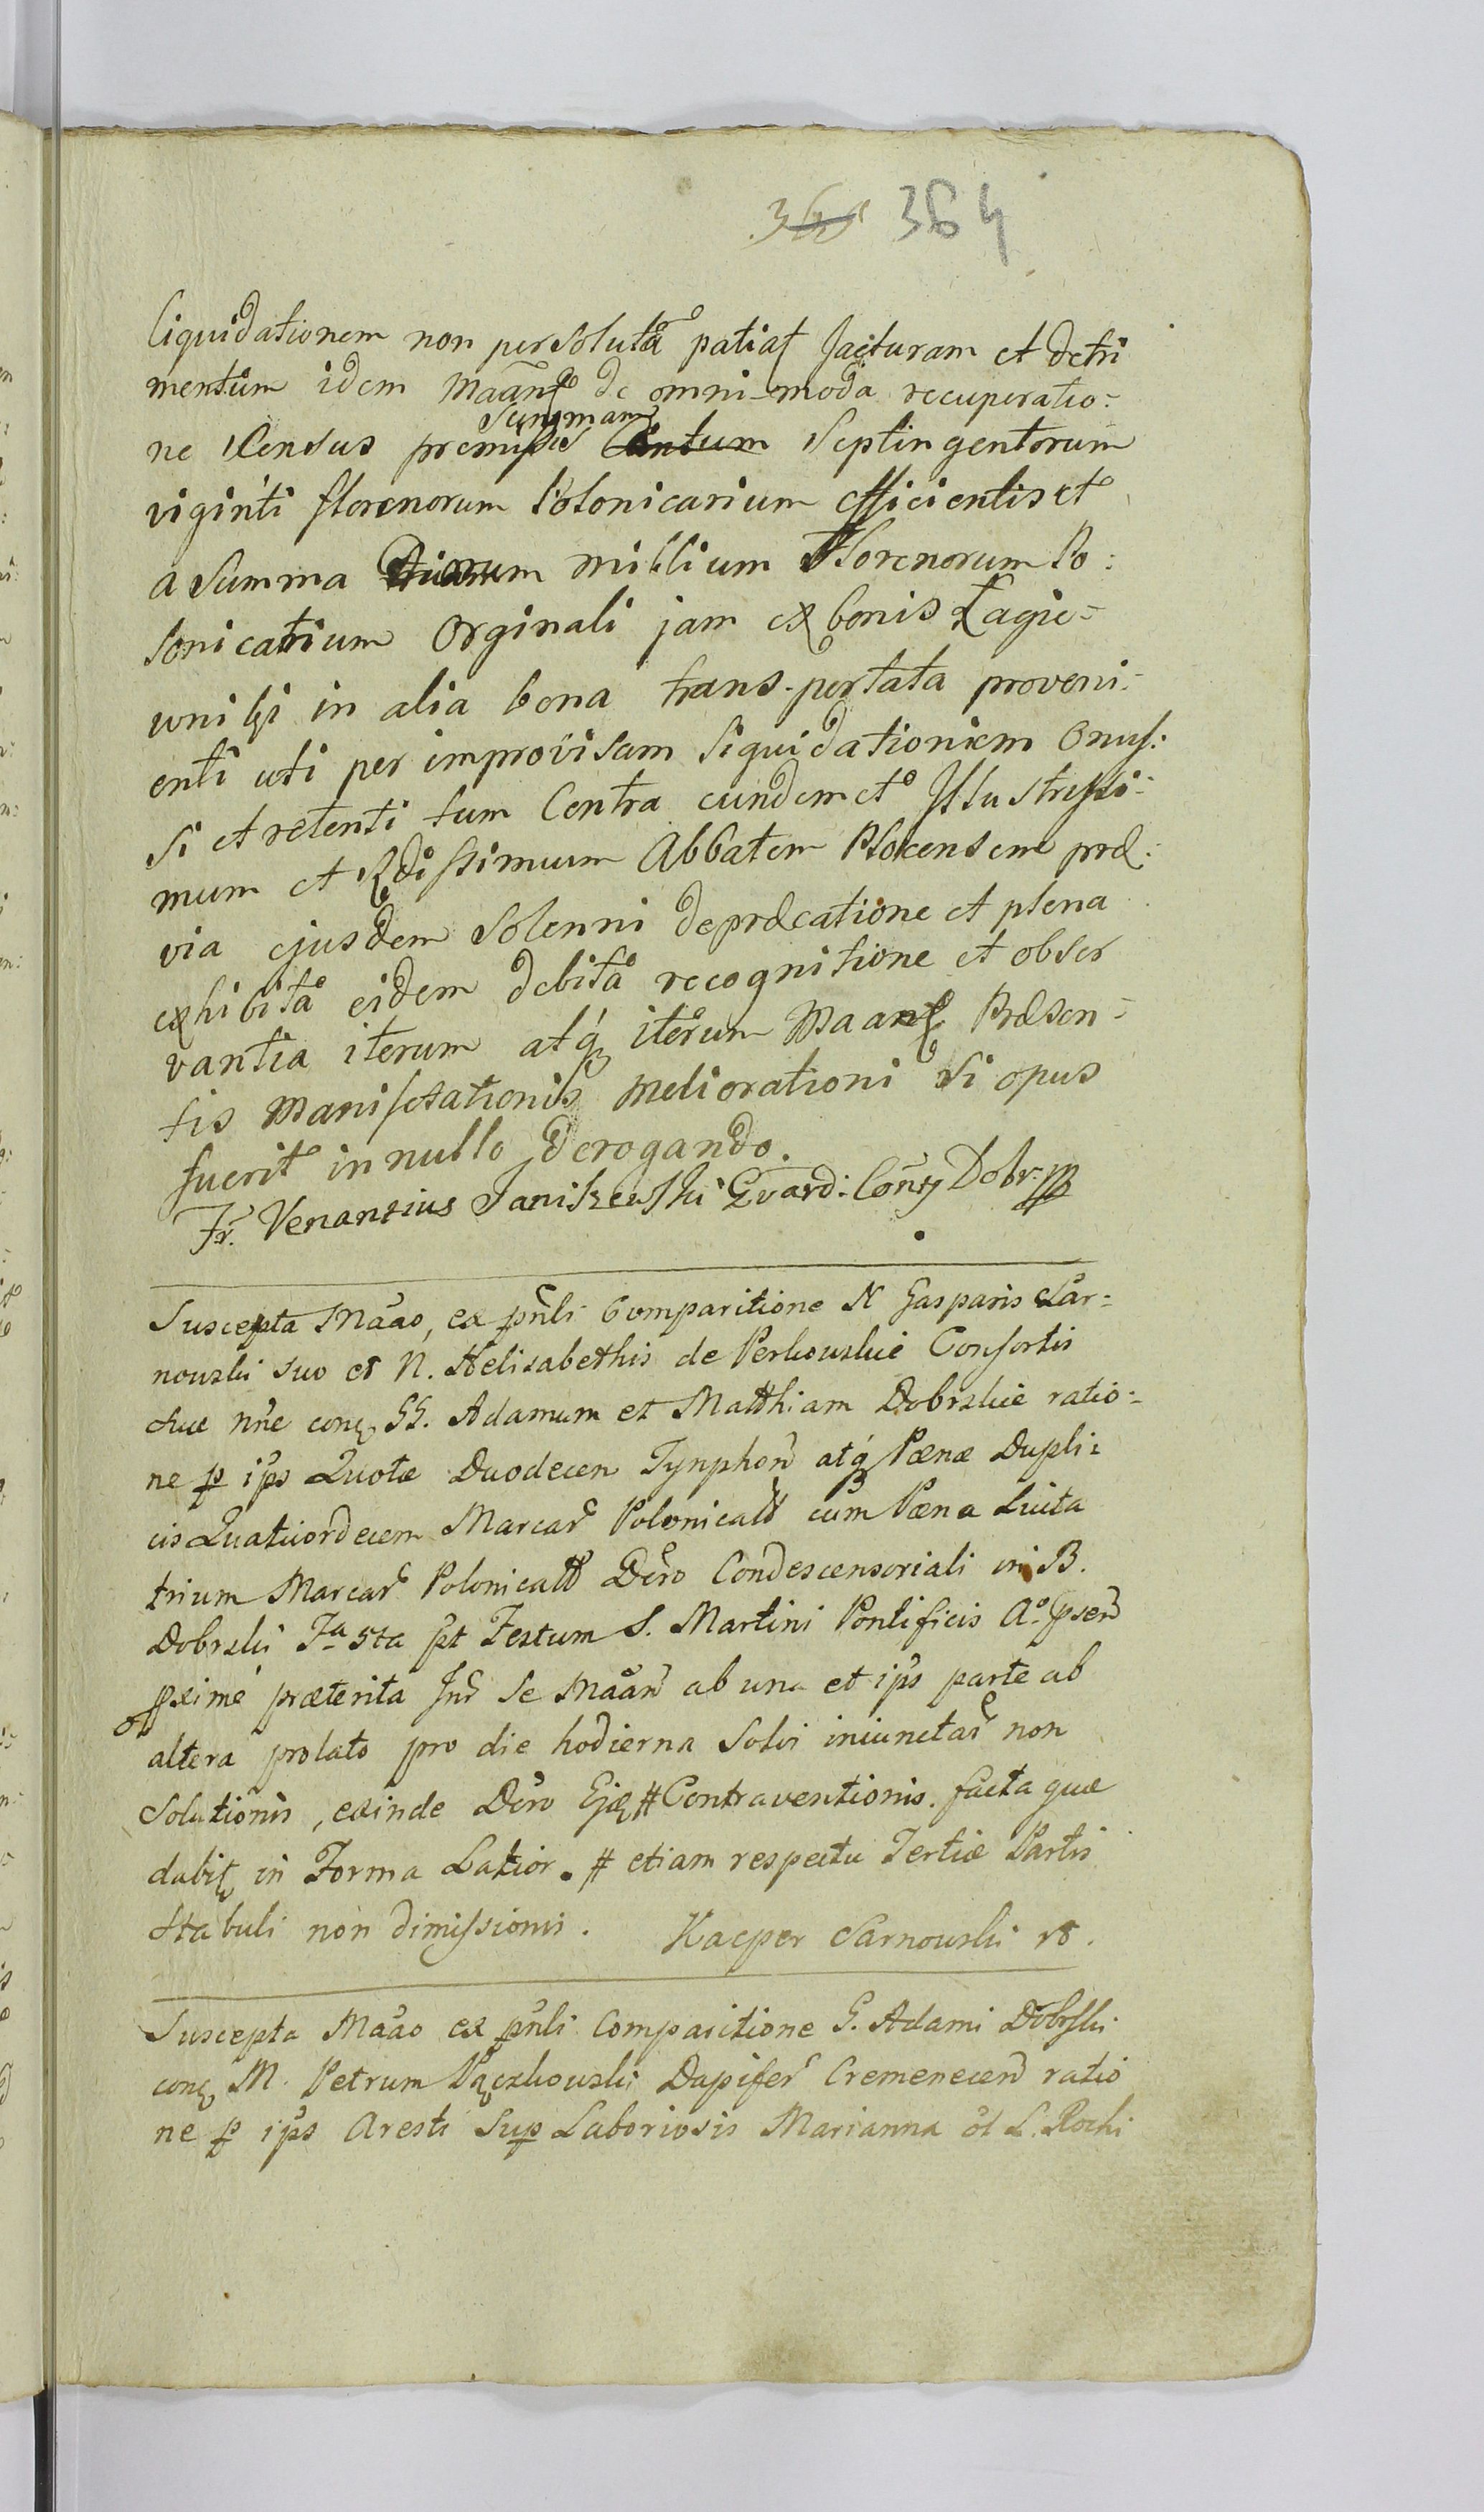 364
liquidationem non persolutã patiat jacturam et detri
mentum idem Maan de omni-moda recuperatio=
ne Census premissæ Summam Septingentorum
viginti florenorum Polonicarium efficientis et
a Summa millium Florenorum Po:
lonicalium Orginali jam ex bonis Łagie=
wniki in alia bona trans-portata proveni=
enti uti per improvisam liquidationem Onus:
si et retenti tum Contra eundem et Illustrissi=
mum et Rdissimum Abbatem Plocensem præ:
via ejusdem Solenni depræcatione et plena
exhibita eidem debita recognitione et obser
vantia iterum atq iterum Maan Præsen=
tis Manifestationis Meliorationi si opus
fuerit in nullo derogando.
Fr. Venantius Janiszewski Gvard: Conv Dobr: mp
Suscepta Maão, ex pñli Comparitione N Gasparis Sar=
nowski suo et N. Helisabethis de Perkowskie Consortis
suæ nñe con GG. Adamum et Matthiam Dobrskie ratio=
ne p ips Quotæ Duodecem Tynphon atq Pœnæ Dupli=
cis Quatuordecem Marcar Polonicall cum Pœna Luita
trium Marcar Polonicall Dcro Condescensoriali in B.
Dobrski Fa 5ta pt Festum S. Martini Pontificis Ao psen
pxime præterita Int Se Maan ab una et ips parte ab
altera prolato pro die hodierna Solvi iniunctar non
Solutionis, exinde Dcro Ejq # Contraventionis. facta quæ
dabit in Forma Latior. # etiam respectu Tertiæ Partis
Stabuli non dimissionis. Kacper Sarnowski
Suscepta Maão ex pñli Comparitione G. Adami Dobrski
con M. Petrum Pączkowski Dapifer Cremenecen ratio
ne p ips Aresti Sup Laboriosis Marianna ol L. Rochi